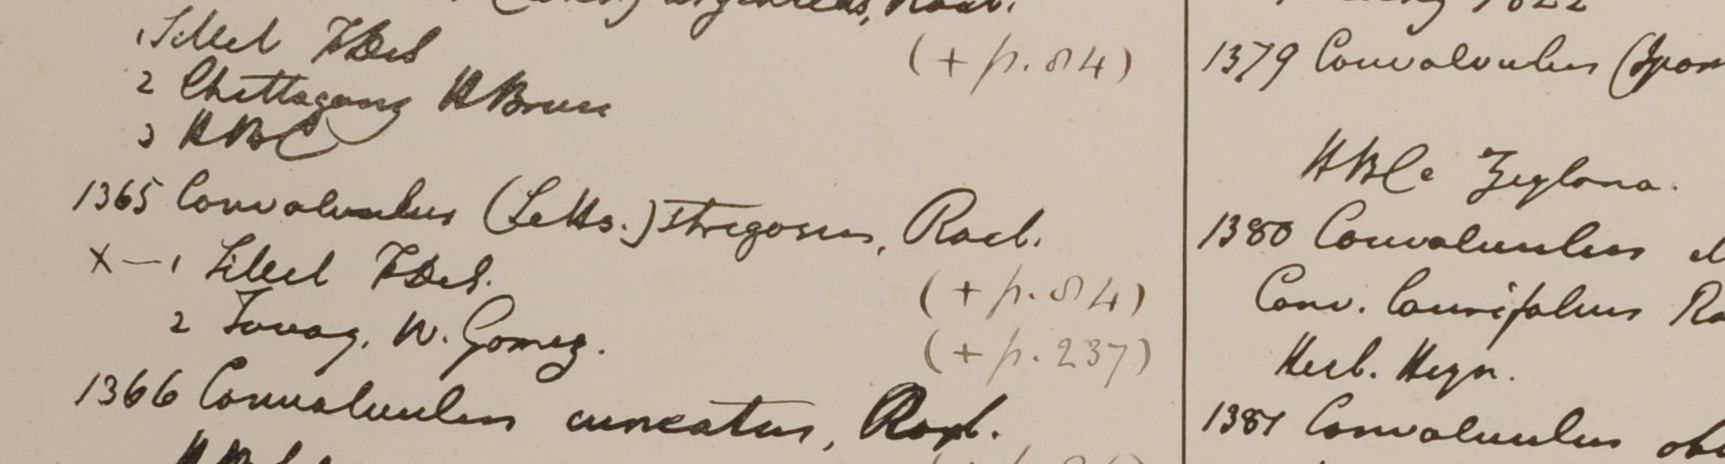 (+ p. 84)
2 Chittagong HBruce
3 HBC
1365 Convolvulus (Letts.) strigosus, Roxb.
X – 1 Sillet FDeS.
(+ p. 84)
2 Tavoy. W. Gomez.
(+ p. 237)
1366 Convolvulus cuneatus, Roxb.
1822
1379 Convolvulus (Ipom
HBC e Zeylona.
1380 Convolvulus
Conv. laurifolius Ro
Herb. Heyn.
1381 Convolvulus